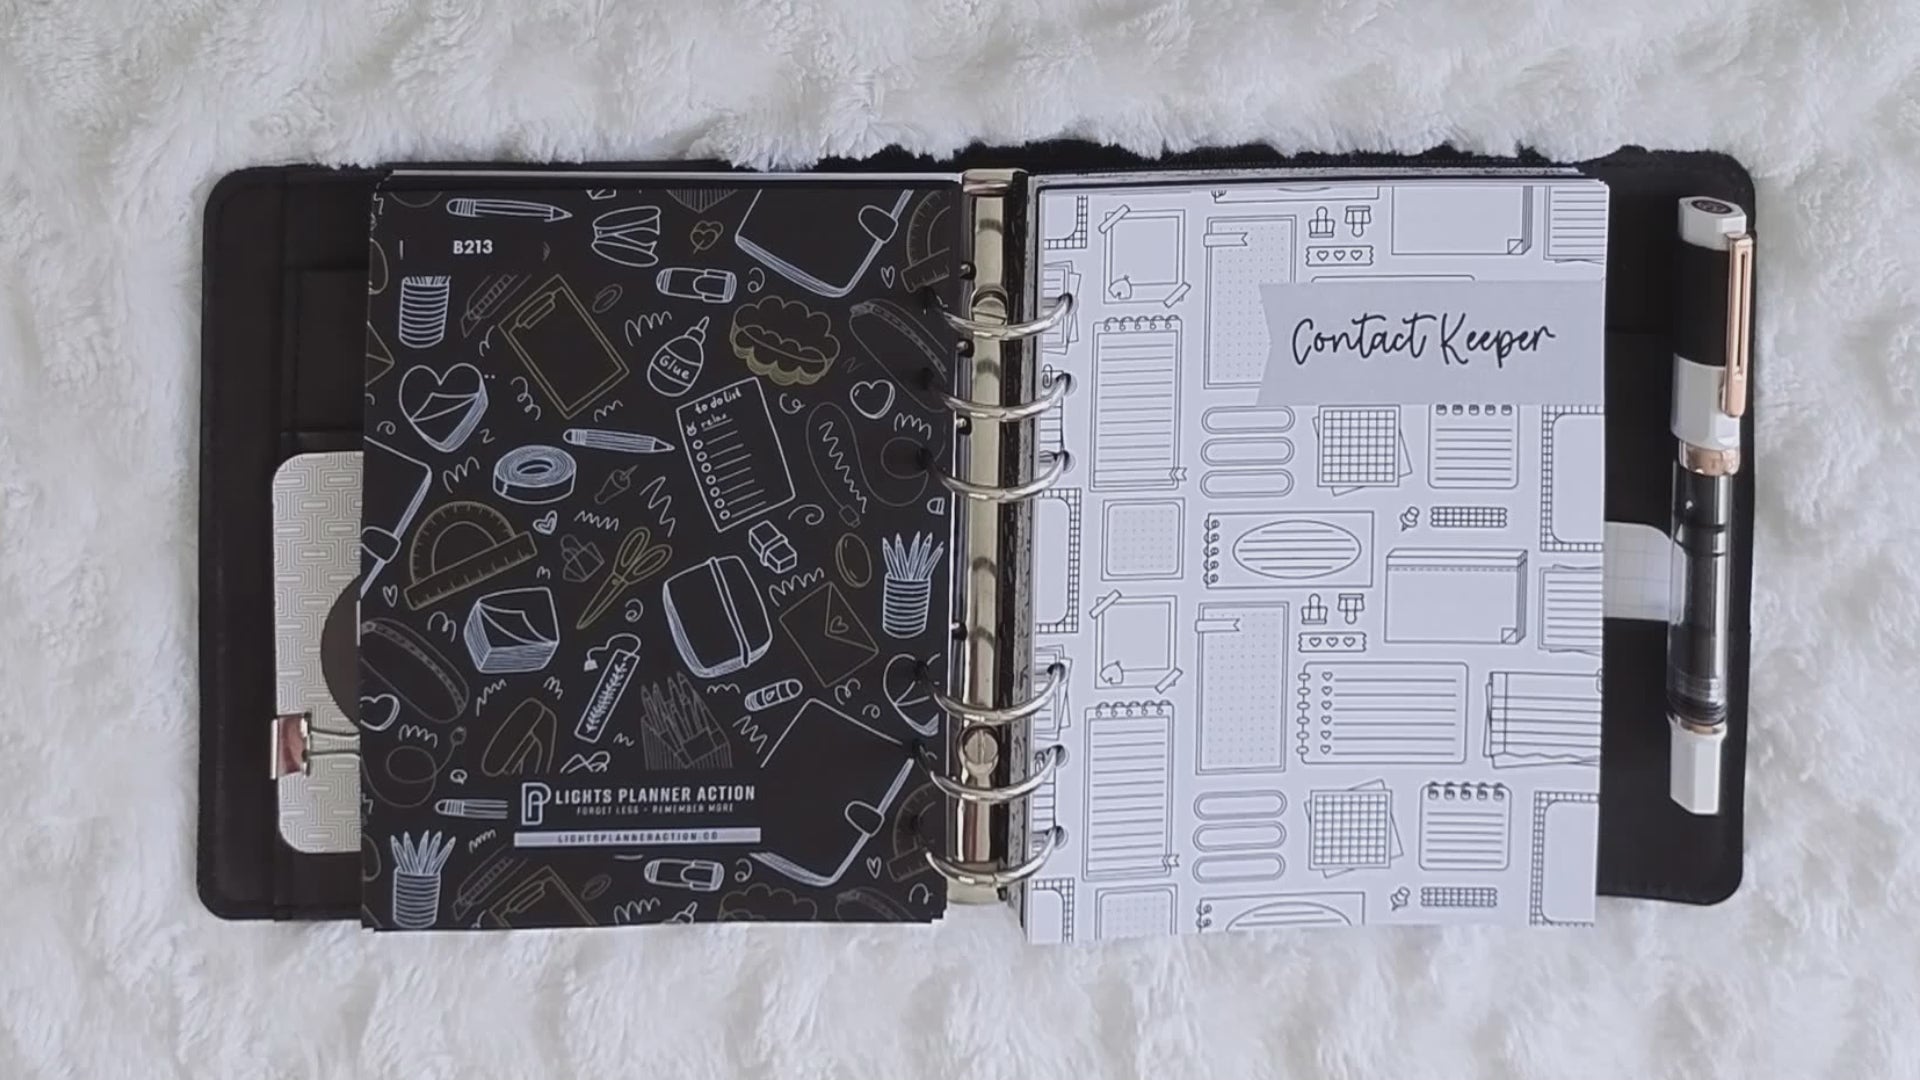 B213
Glue
to do list
relax
LIGHTS PLANNER ACTION
FORGET LESS • REMEMBER MORE
LIGHTSPLANNERACTION.CO
Contact Keeper